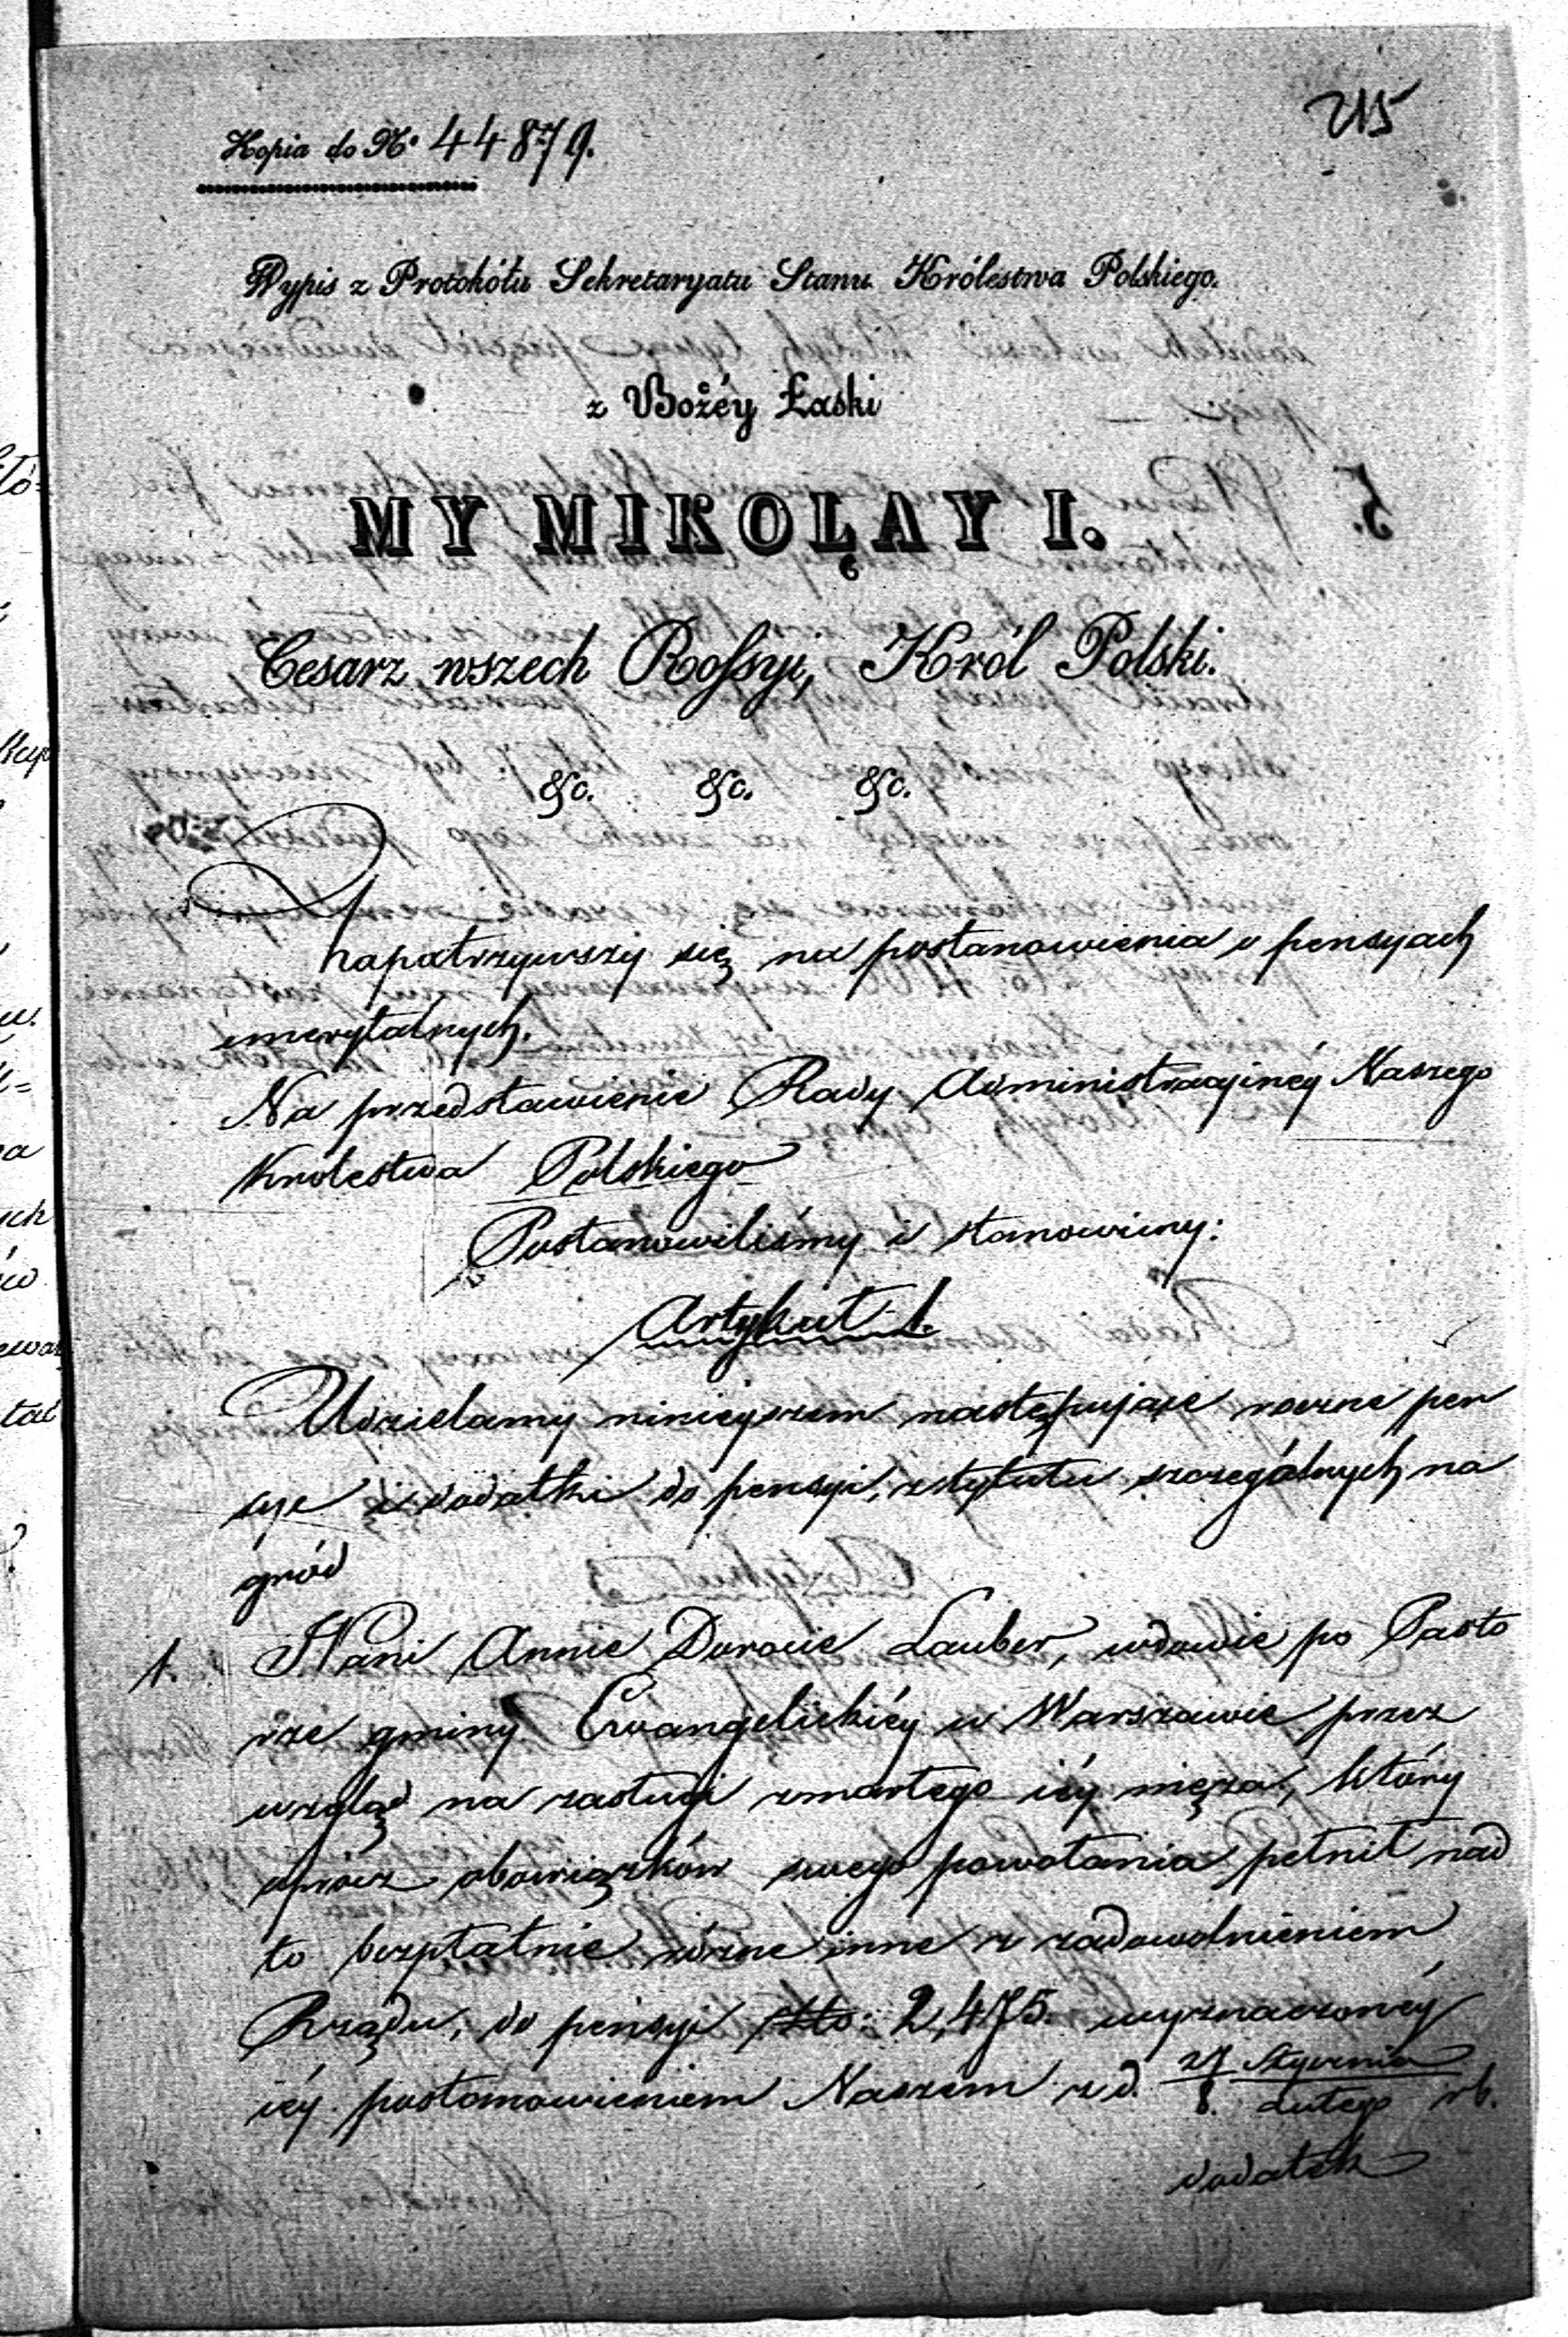 215
Kopia do Nº 44879.
Wypis z Protokółu Sekretaryatu Stanu Królestwa Polskiego.
z Bożéy Łaski
MY MIKOŁAY I.
Cesarz wszech Rossyi, Król Polski.
&c. &c. &c.
Zapatrzywszy się na postanowienia o pensyach
emerytalnych.
Na przedstawienie Rady Administracyinéy Naszego
Krolestwa Polskiego
Postanowiliśmy i stanowiemy:
Artykuł 1.
Udzielamy ninieyszem następuiące roczne pen
sye i dodatki do pensyi, z tytułu szczególnych na
gród
1. Pani Annie Dorocie Lauber, wdowie po Pasto
rze gminy Ewangelickiéy w Warszawie przez
wzgląd na zasługi zmarłego iéy męża, który
oprócz obowiązków swego powołania pełnił nad
to bezpłatnie różne inne z zadowolnieniem
Rządu, do pensyi złp: 2,475. wyznaczonéy
iéy postanowieniem Naszem z d. 27 Stycznia
8. Lutego rb.
dodatek